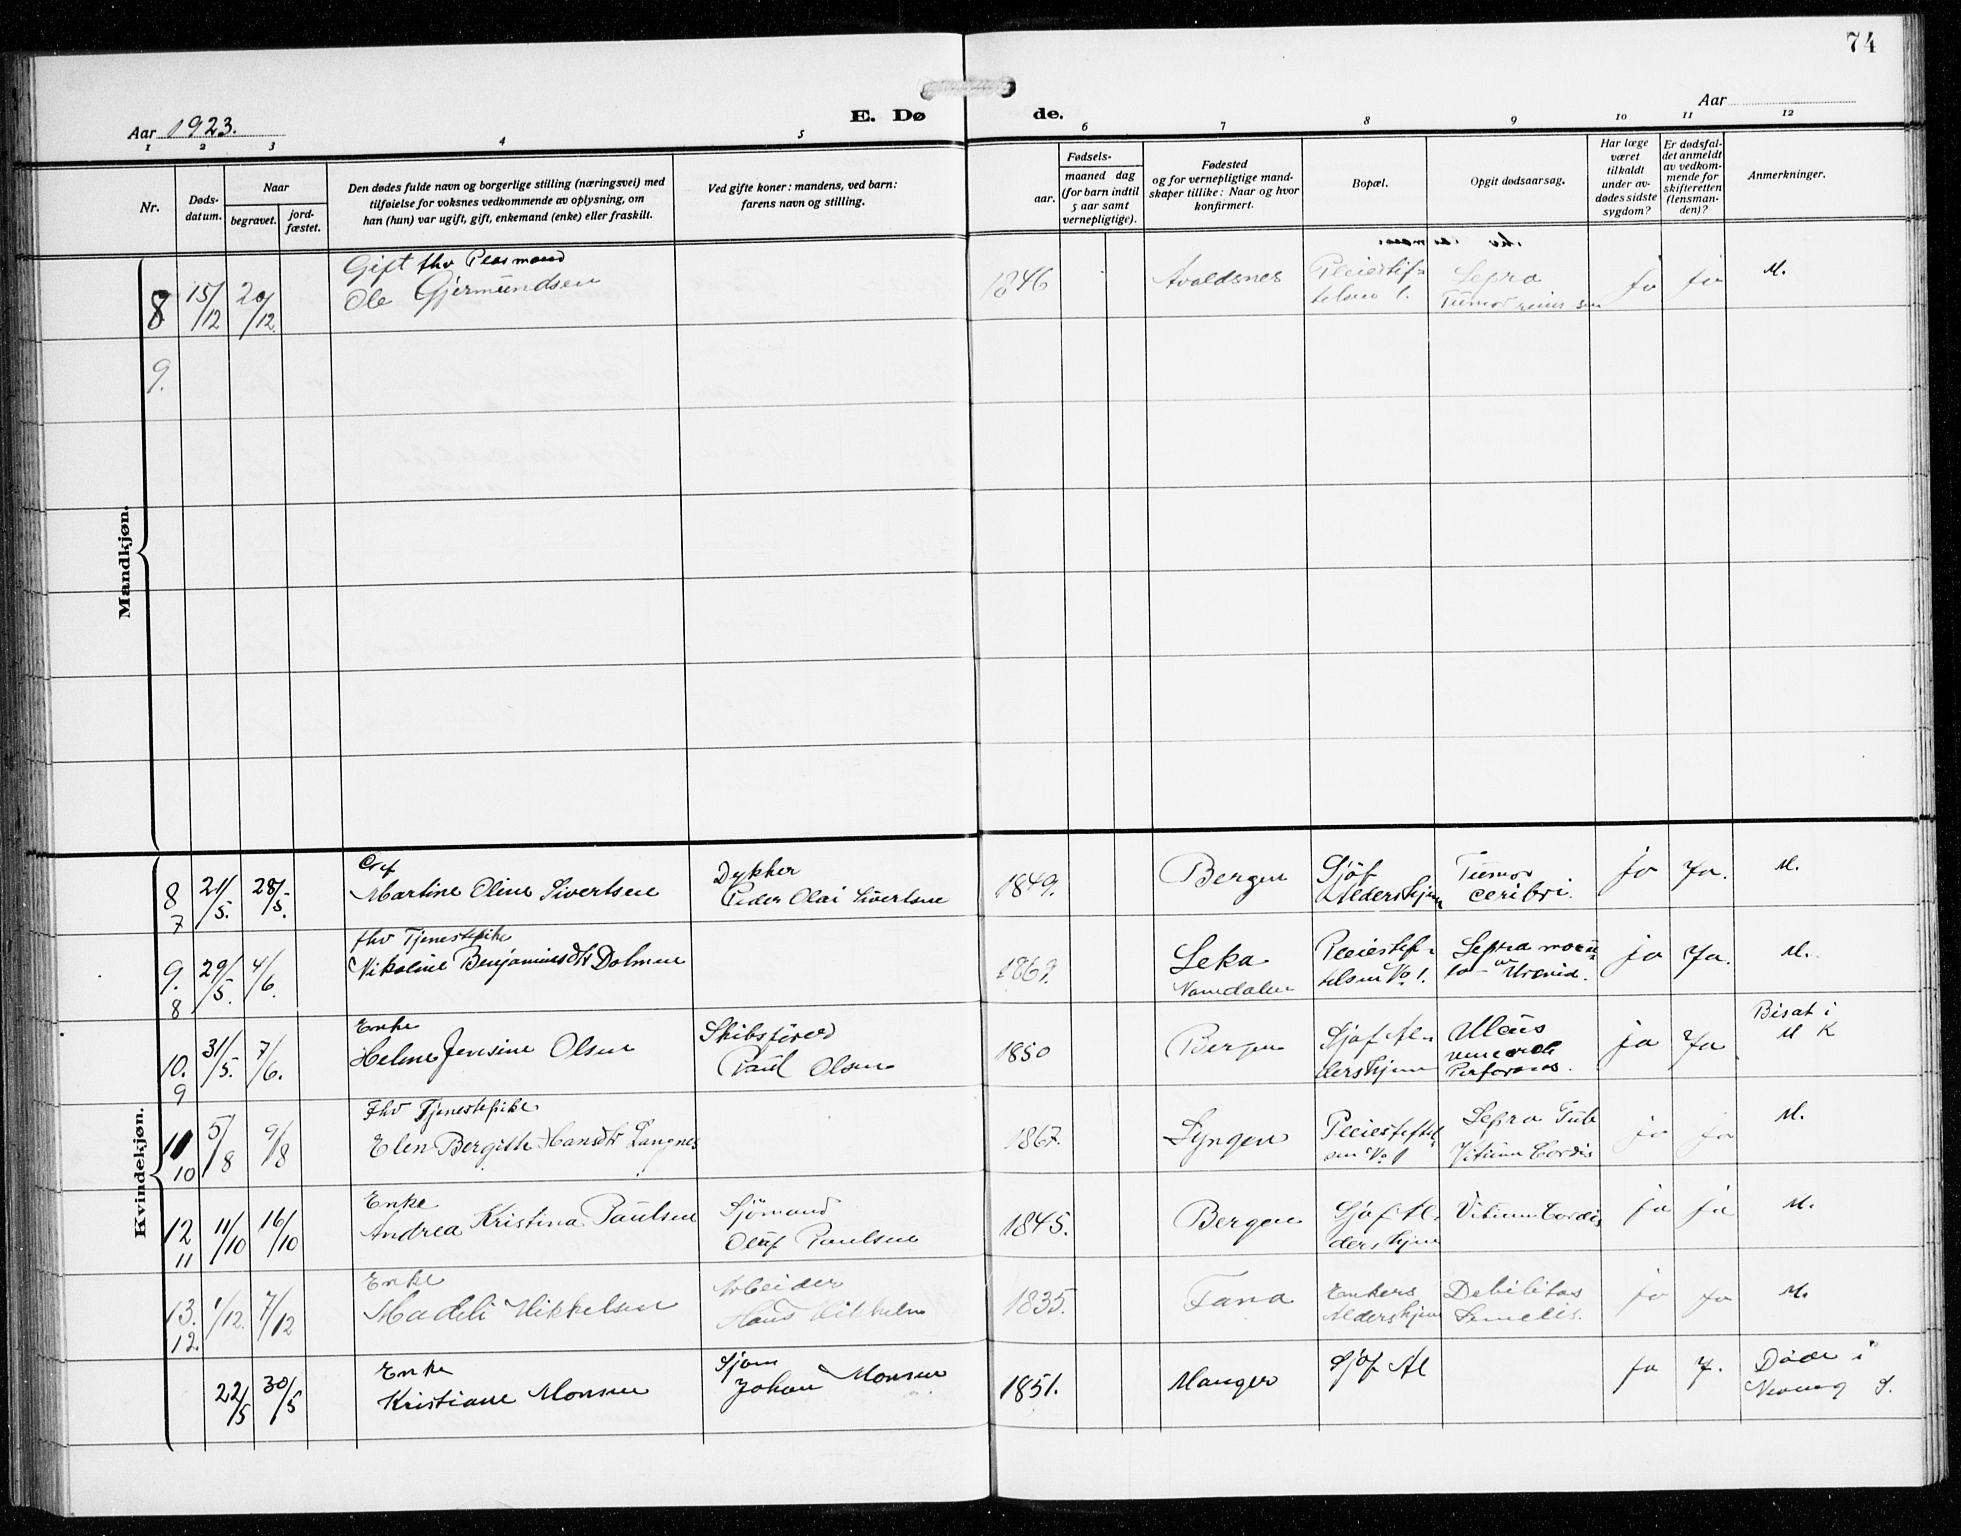 74
Aar 1923.
E. Døde.
Aar
1 2 3 4 5 6 7 8 9 10 11 12
Nr.
Døds-datum.
Naar
begravet.
jord-fæstet.
Den dødes fulde navn og borgerlige stilling (næringsvei) med
tilføielse for voksnes vedkommende av oplysning, om
han (hun) var ugift, gift, enkemand (enke) eller fraskilt.
Ved gifte koner: mandens, ved barn:
farens navn og stilling.
aar.
Fødsels-
maaned dag
(for barn indtil
5 aar samt
vernepligtige).
Fødested
og for vernepligtige mand-
skaper tillike: Naar og hvor
konfirmert.
Bopæl.
Opgit dødsaarsag.
Har læge
været
tilkaldt
under av-
dødes sidste
sygdom?
Er dødsfal-
det anmeldt
av vedkom-
mende for
skifteretten
(lensman-
den)?
Anmerkninger.
Mandkjøn.
Gift fhv
8 15/12 20/12 Ole Gjermundsen 1846 Avaldsnes Pleiestif-telsen 1. Lepra Tumor ja ja M.
9.
Kvindekjøn.
8 21/5. 28/5. Martine Oline Sivertsen Dykker Peder Olai Sivertsen 1849. Bergen Sjøf Aldershjem Tumor ceribri. ja Ja. M.
7
fhv Tjenestepike
9. 29/5. 4/6. Nikoline Benjaminsdtr Dolmen 1869. Leka Namdalen Pleiestif-telsen No 1. Lepra ja Ja. M.
8
Enke
10. 31/5. 7/6. Helene Jensine Olsen Skibsfører Paul Olsen 1850 Bergen Sjøf Al-dershjem Ulcus Perforans. ja Ja Bisat i M K
9
Fhv Tjenestepike
11 5/8 9/8 Elen Bergitte Hansdtr Langnes 1867. Lyngen Pleiestiftel-sen No 1 Lepra Tub Vitium Cordis ja ja M.
10
Enke
12 11/10 16/10 Andrea Kristina Paulsen Sjömand Oluf Paulsen 1845. Bergen Sjøf Al-dershjem Vitium Cordis ja ja M.
11
Enke
13. 1/12. 7/12 Madeli Mikkelsen Arbeider Hans Mikkelsen 1835. Fana Enkers Aldershjem Debilitas Senelis. ja ja M.
12
Enke
22/5 30/5 Kristiane Monsen Sjøm Johan Monsen 1851. Manger Sjøf Al ja J. Døde i